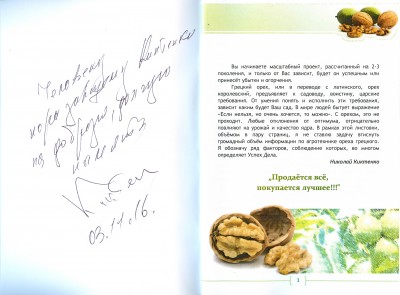 Человеку
на добрую, долгую
03.11.16.
Вы начинаете масштабный проект, рассчитанный на 2-3
поколения, и только от Вас зависит, будет он успешным или
принесёт убытки и огорчения.
Грецкий орех, или в переводе с латинского, орех
королевский, предъявляет к садоводу, воистину, царские
требования. От умения понять и исполнить эти требования,
зависит каким будет Ваш сад. В мире людей бытует выражение
«Если нельзя, но очень хочется, то можно». С орехом, это не
проходит. Любые отклонения от оптимума, отрицательно
повлияют на урожай и качество ядра. В рамках этой листовки,
объёмом в пару страниц, я не ставлю задачу втиснуть
громадный объём информации по агротехнике ореха грецкого.
Я обозначу ряд факторов, соблюдение которых, во многом
определяет Успех Дела.
Николай Киктенко
„Продаётся всё,
покупается лучшее!!!”
3